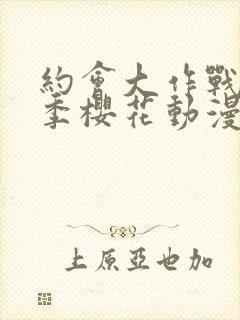 約會大作戰
季櫻花動漫
上原亞也加